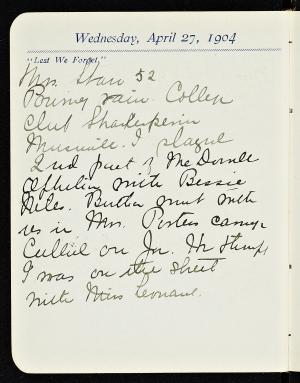 Wednesday, April 27, 1904
"Lest We Forget."
Mrs. Starr 52
Pouring rain. College
Club Shakespeare
Musicale. I played
2nd part of McDowell
with Bessie
Niles. Butler went with
us in Mrs. Porters carriage
Called on Jn. He
I was on the street
with Miss Leonard.